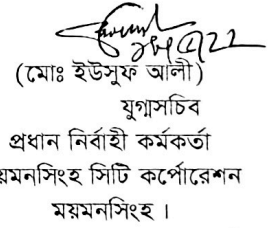 (মোঃ ইউসুফ আলী)
যুগ্মসচিব
প্রধান নির্বাহী কর্মকর্তা
য়মনসিংহ সিটি কর্পোরেশন
ময়মনসিংহ ।